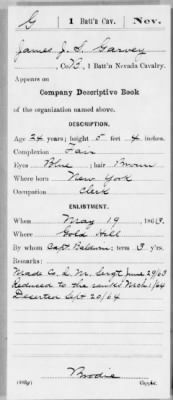 G | 1 Batt'n Cav. | Nev.
James J. S. Garvey
, Co. B, 1 Batt'n Nevada Cavalry.
Appears on
Company Descriptive Book
of the organization named above.
DESCRIPTION.
Age 24 years; height 5 feet 4 inches.
Complexion Fair
Eyes Blue; hair Brown
Where born New York
Occupation Clerk
ENLISTMENT.
When May 19, 1863.
Where Gold Hill
By whom Capt. Baldwin; term 3 y'rs.
Remarks:
Made Co. Q. M. Sergt June 29/63
Reduced to the ranks Mch 1/64
Deserted Sept 20/64
Brodie
Copyist.